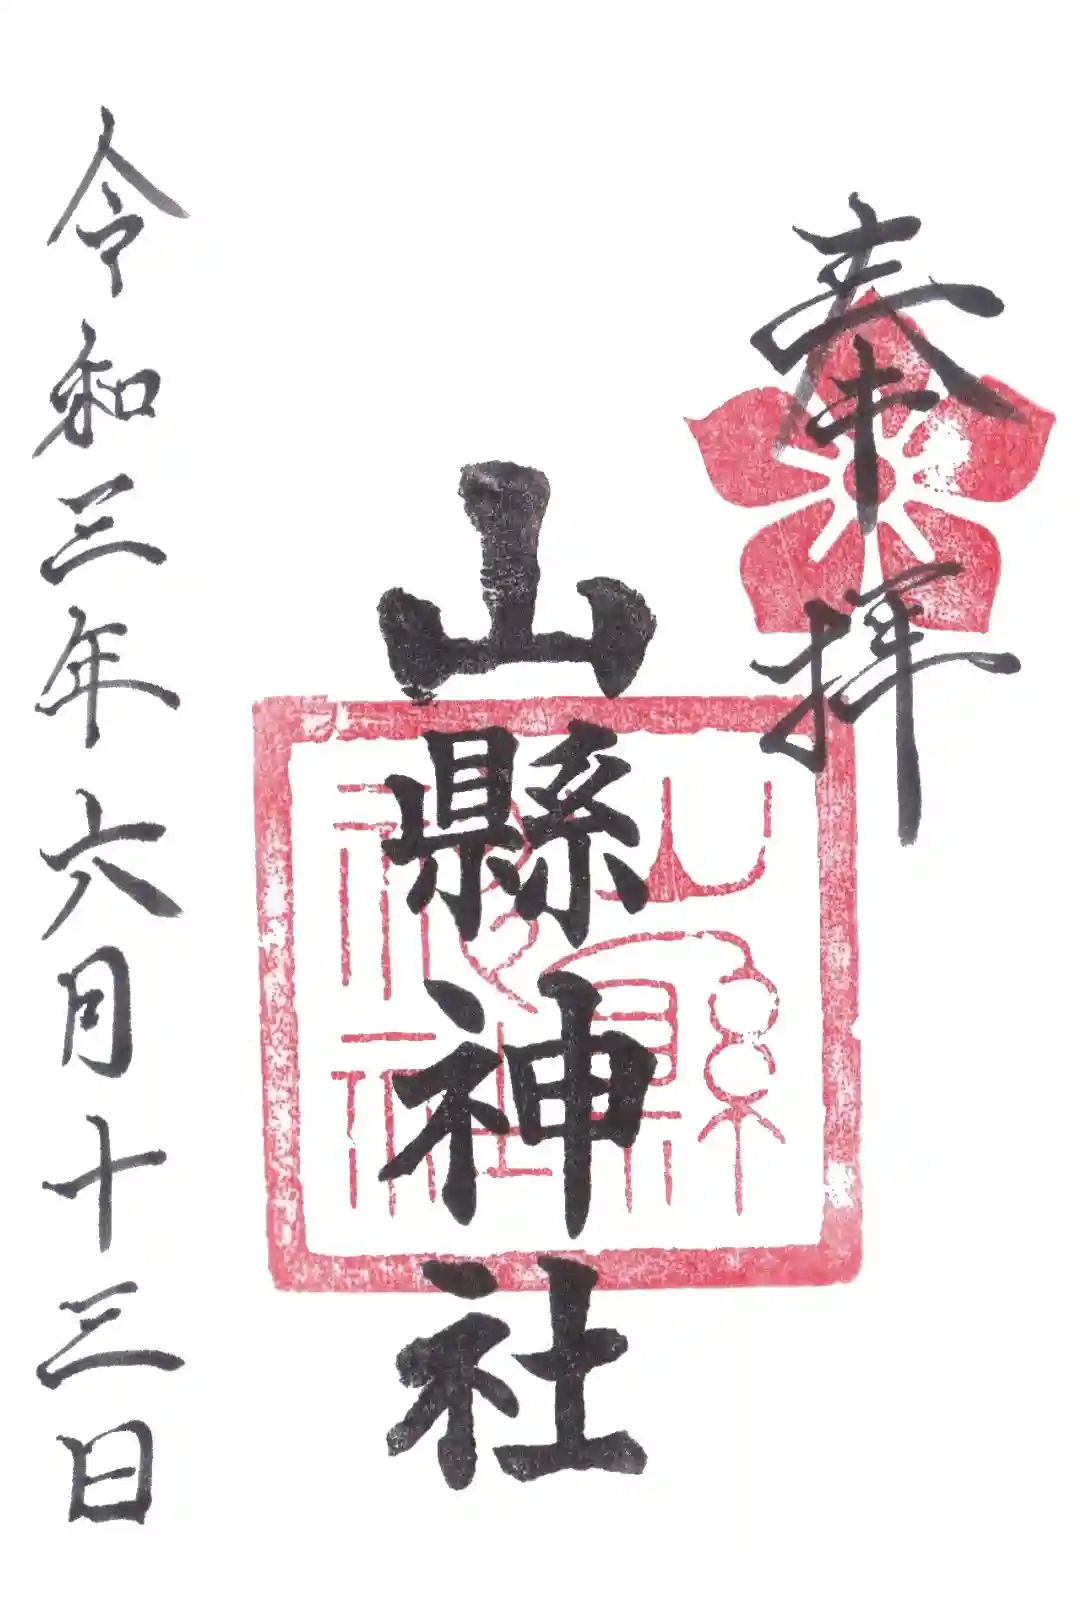 奉拝
山縣神社
山縣神社
令和三年六月十三日